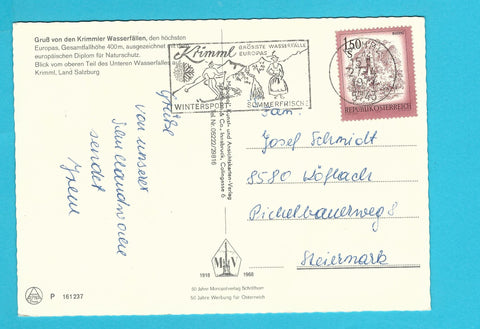 Gruß von den Krimmler Wasserfällen, den höchsten
Europas, Gesamtfallhöhe 400 m, ausgezeichnet mit dem
europäischen Diplom für Naturschutz.
Blick vom oberen Teil des Unteren Wasserfalles auf
Krimml, Land Salzburg
Krimml
GRÖSSTE WASSERFÄLLE
EUROPAS
WINTERSPORT
SOMMERFRISCHE
1.50
REPUBLIK ÖSTERREICH
Grüße
von unserer
sendet
Irene
Kunst- und Ansichtskarten-Verlag
& Co., Innsbruck,
Tel. Nr. 05222/29816
Fam.
Josef Schmidt
8580 Köflach
Pichelbauerweg 8
Steiermark
M V
1918
1968
50 Jahre
50 Jahre Werbung für Österreich
P 161237